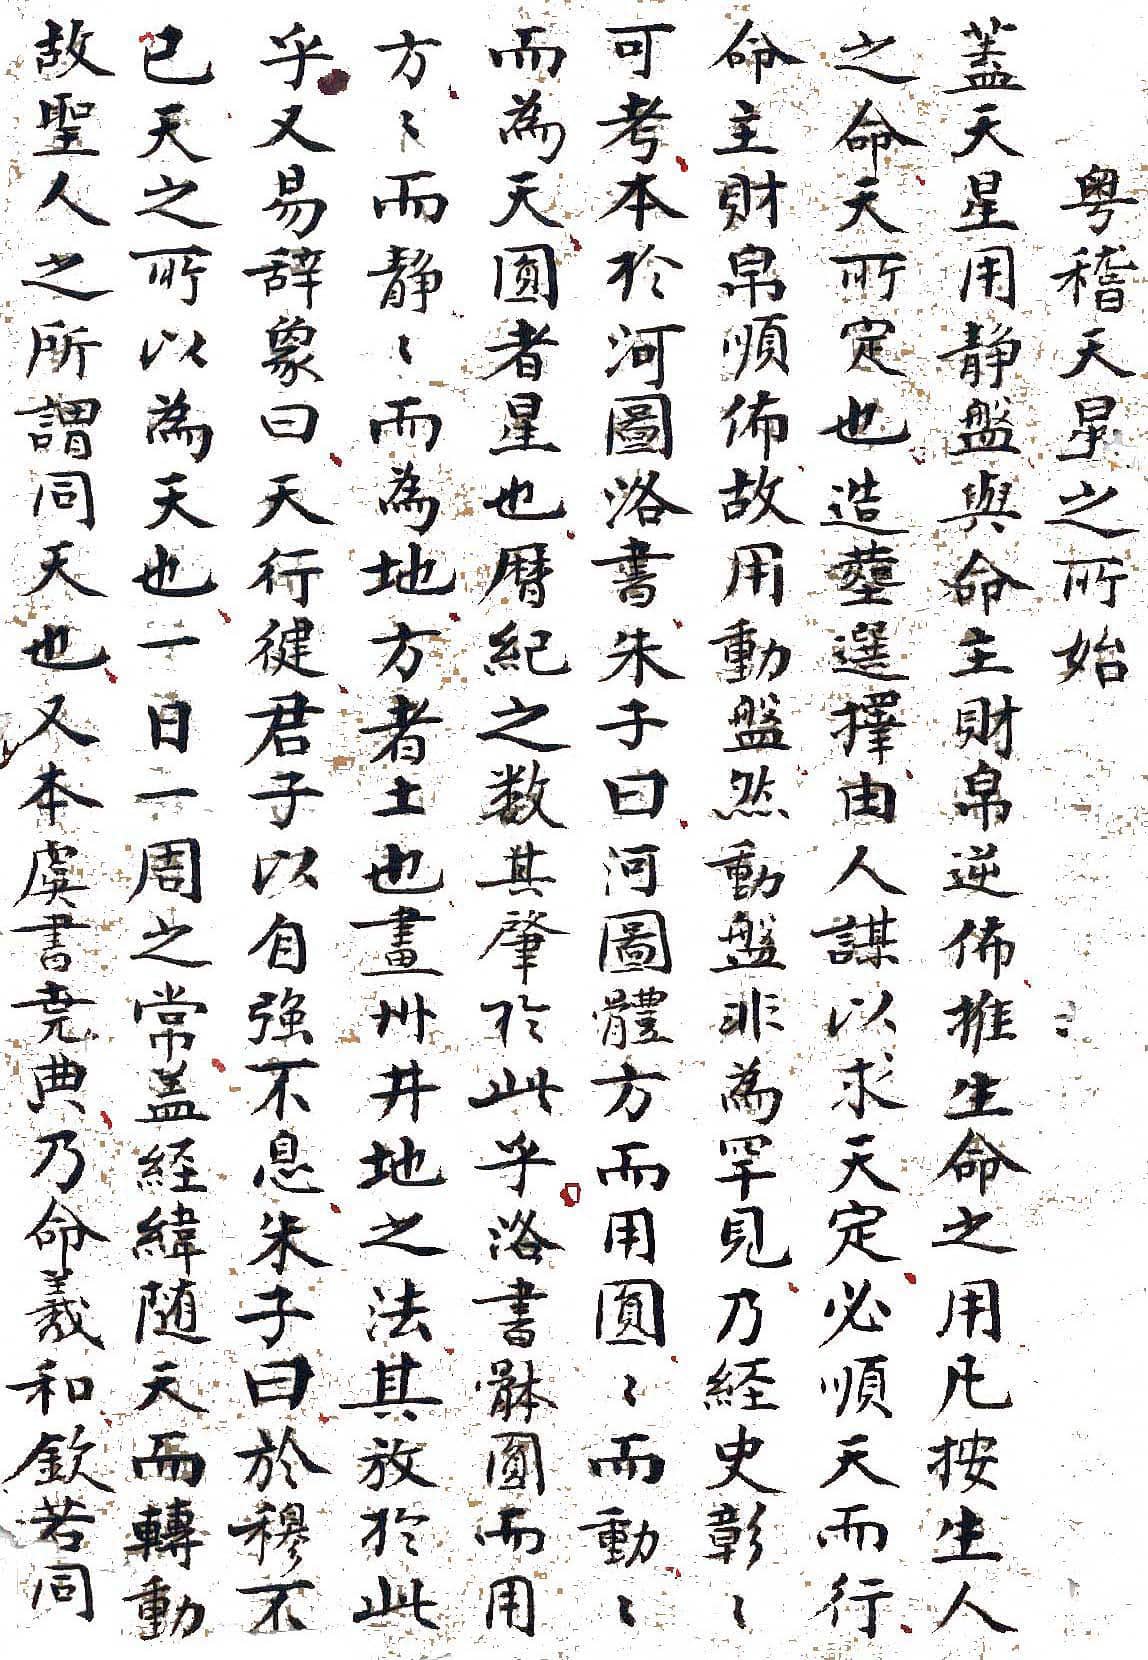 粤稽天星之所始
蓋天星用静盤與命主財帛逆佈推生命之用凡按生人
之命天所定也造塟選擇由人謀以求天定必順天而行
命主財帛順佈故用動盤然動盤非為罕見乃経史彰〻
可考本於河圖洛書朱子曰河圖體方而用圓〻而動〻
而為天圓者星也暦紀之数其肇於此乎洛書躰圓而用
方〻而静〻而為地方者土也畫州井地之法其放於此
乎又易辞象曰天行健君子以自強不息朱子曰於穆不
已天之所以為天也一日一周之常盖経緯随天而轉動
故聖人之所謂同天也又本虞書堯典乃命羲和欽若同